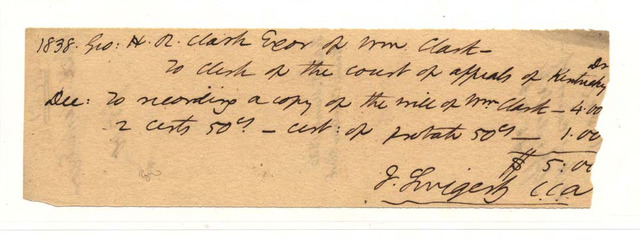 1838. Geo: H. R. Clark Exor of Wm Clark — Dr
To clerk of the court of appeals of Kentucky
Dec: To recording a copy of the will of Wm Clark — 4.00
2 certs 50cs — cert: of probate 50cs — 1.00
$ 5.00
J. Swigert CCA